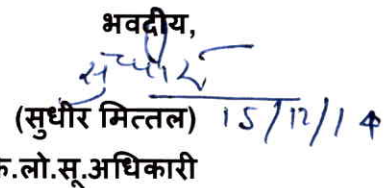 भवदीय,
सुधीर
(सुधीर मित्तल) 15/12/14
क.लो.सू.अधिकारी